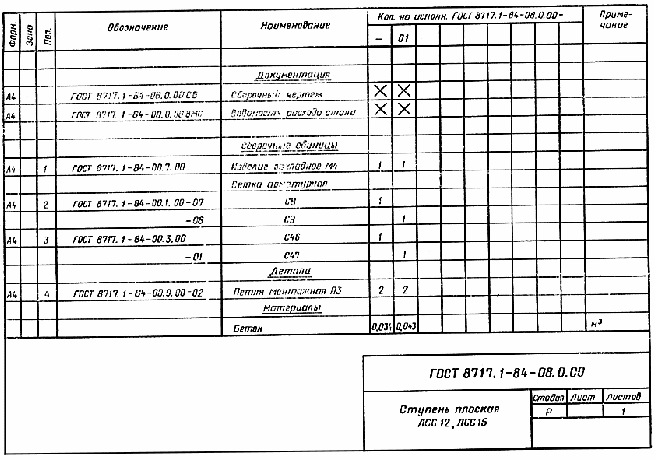 Форм. Зона Поз. Обозначение Наименование Кол. на исполн. ГОСТ 8717.1-84-08.0.00- Приме-
чание
– 01
Документация
А4 ГОСТ 8717.1-84-08.0.00СБ Сборочный чертеж X X
А4 ГОСТ 8717.1-84-00.0.00ВМС Ведомость расхода стали X X
Сборочные единицы
А4 1 ГОСТ 8717.1-84-00.7.00 Изделие закладное М4 1 1
Сетка арматурная
А4 2 ГОСТ 8717.1-84-00.1.00-07 1
-08 1
А4 3 ГОСТ 8717.1-84-00.3.00 С46 1
-01 С47 1
Детали
А4 4 ГОСТ 8717.1-84-00.9.00-02 Петля монтажная П3 2 2
Материалы
Бетон 0,043 м³
ГОСТ 8717.1-84-08.0.00
Ступень плоская
ЛСС12, ЛСС15
Стадия Лист Листов
Р 1